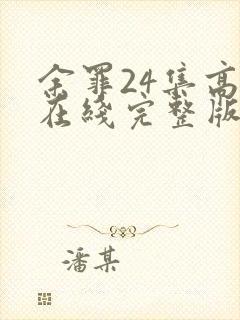 余罪24集高
在线完整版
潘某